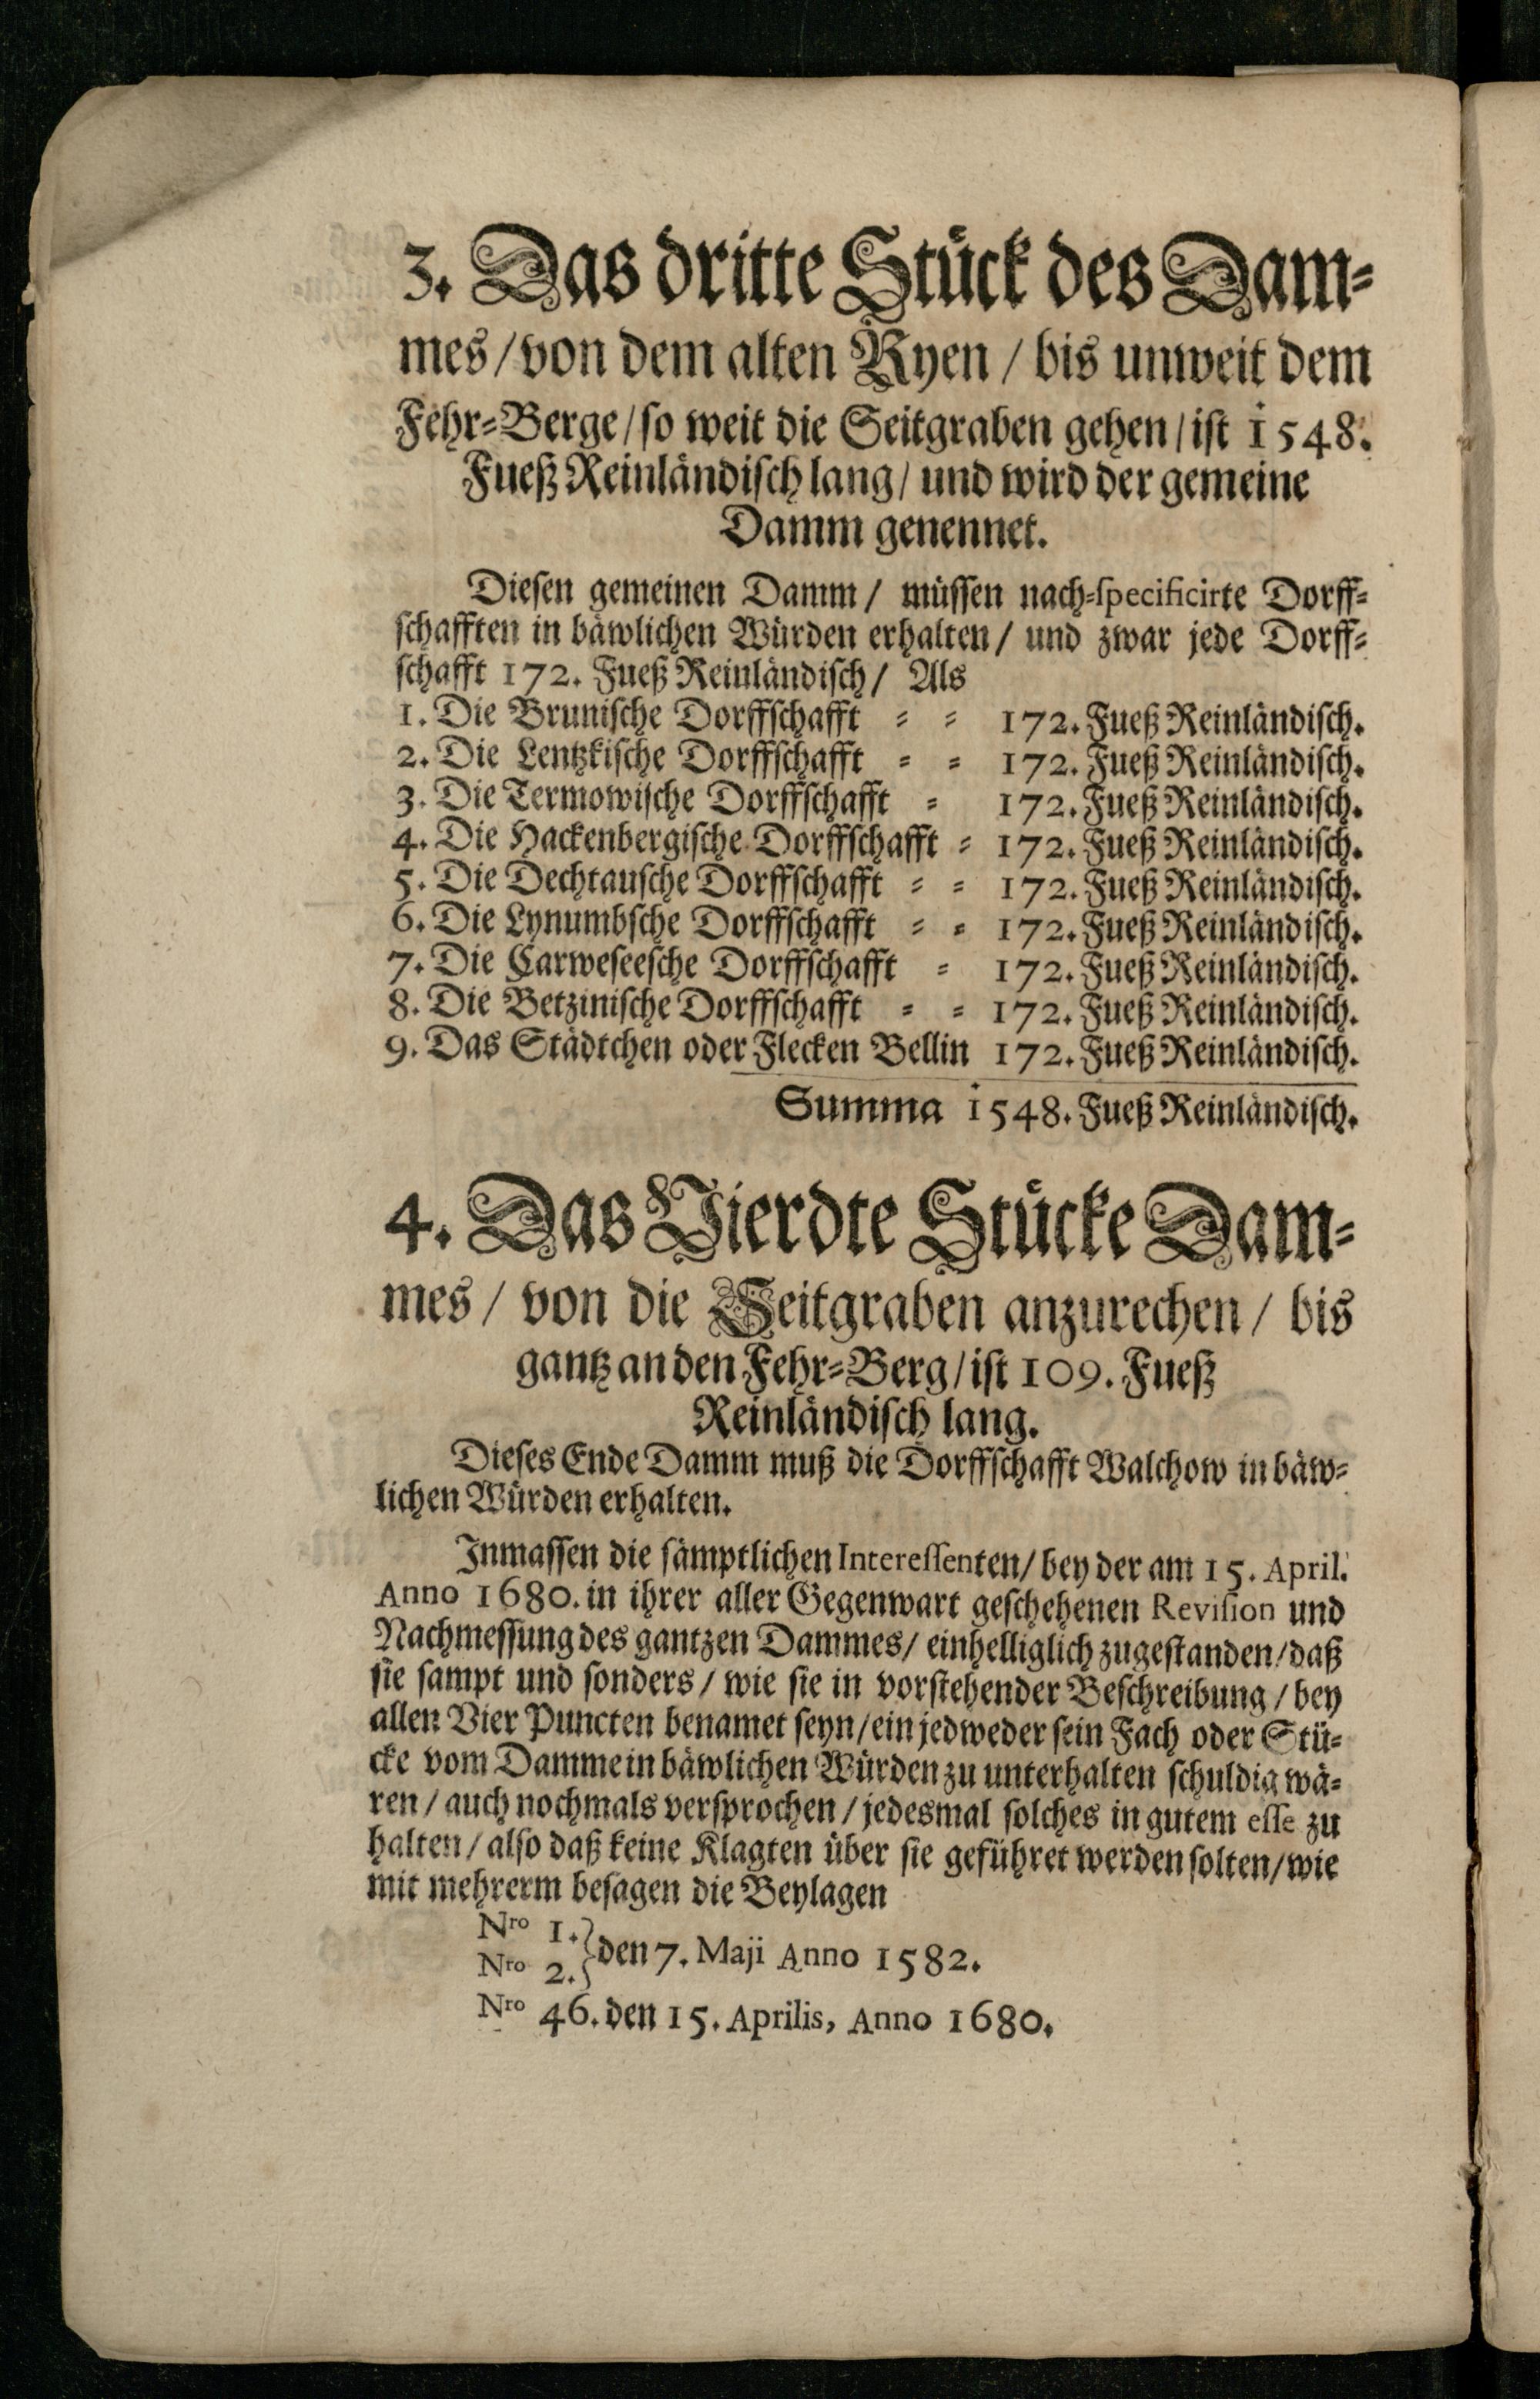 3. Das dritte Stück des Dam-
mes / von dem alten Ryen / bis unweit dem
Fehr-Berge / so weit die Seitgraben gehen / ist 1548.
Fueß Reinländisch lang / und wird der gemeine
Damm genennet.
Diesen gemeinen Damm / müssen nach-specificirte Dorff-
schafften in bäwlichen Würden erhalten / und zwar jede Dorff-
schafft 172. Fueß Reinländisch / Als
1. Die Brunische Dorffschafft = = 172. Fueß Reinländisch.
2. Die Lentzkische Dorffschafft = = 172. Fueß Reinländisch.
3. Die Termowische Dorffschafft = 172. Fueß Reinländisch.
4. Die Hackenbergische Dorffschafft = 172. Fueß Reinländisch.
5. Die Dechtausche Dorffschafft = = 172. Fueß Reinländisch.
6. Die Lynumbsche Dorffschafft = = 172. Fueß Reinländisch.
7. Die Carweseesche Dorffschafft = 172. Fueß Reinländisch.
8. Die Betzinische Dorffschafft = = 172. Fueß Reinländisch.
9. Das Städtchen oder Flecken Bellin 172. Fueß Reinländisch.
Summa 1548. Fueß Reinländisch.
4. Das Vierdte Stücke Dam-
mes / von die Seitgraben anzurechen / bis
gantz an den Fehr-Berg / ist 109. Fueß
Reinländisch lang.
Dieses Ende Damm muß die Dorffschafft Walchow in bäw-
lichen Würden erhalten.
Inmassen die sämptlichen Interessenten / bey der am 15. April.
Anno 1680. in ihrer aller Gegenwart geschehenen Revision und
Nachmessung des gantzen Dammes / einhelliglich zugestanden / daß
sie sampt und sonders / wie sie in vorstehender Beschreibung / bey
allen Vier Puncten benamet seyn / ein jedweder sein Fach oder Stü-
cke vom Damme in bäwlichen Würden zu unterhalten schuldig wä-
ren / auch nochmals versprochen / jedesmal solches in gutem esse zu
halten / also daß keine Klagten über sie geführet werden solten / wie
mit mehrerm besagen die Beylagen
Nro 1. }
Nro 2. } den 7. Maji Anno 1582.
Nro 46. den 15. Aprilis, Anno 1680.